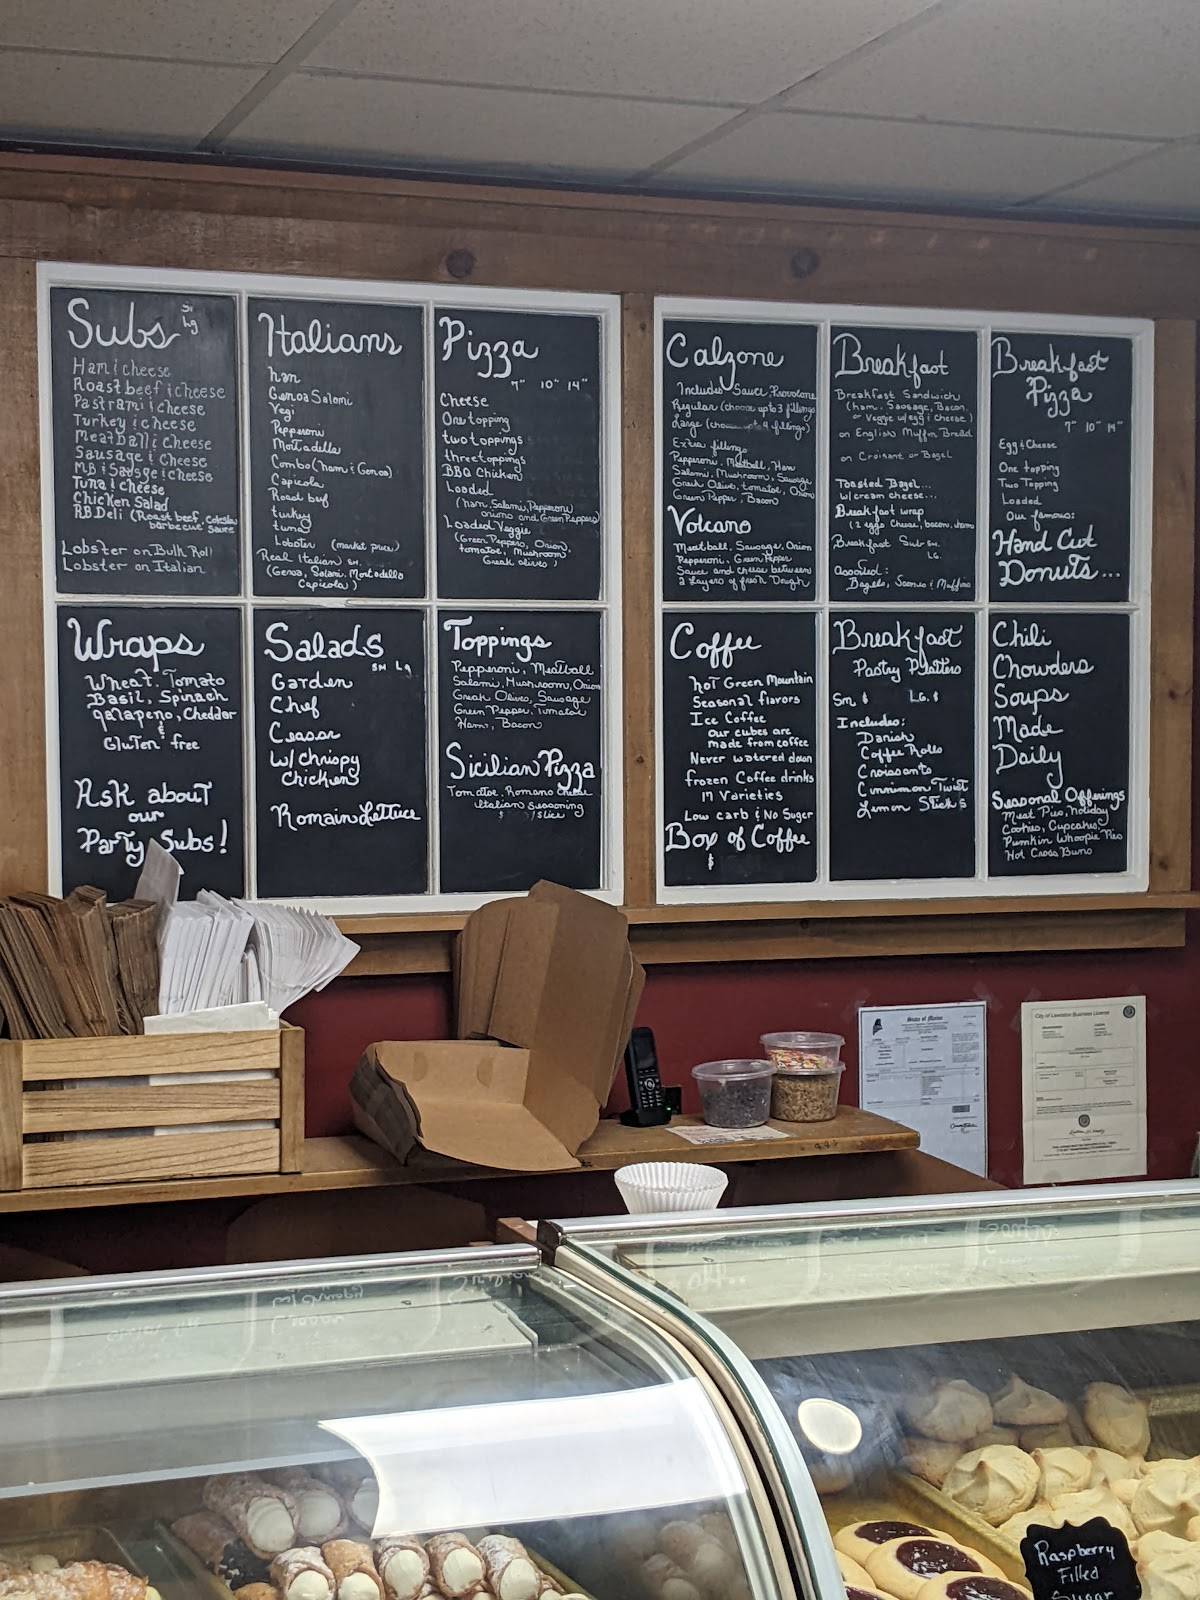 Subs
Sm
Lg
Ham & cheese
Roast beef & cheese
Pastrami & cheese
Turkey & cheese
MeatBall & cheese
Sausage & Cheese
MB & Sausge & cheese
Tuna & cheese
Chicken Salad
RB Deli (Roast beef, Coleslaw
barbecue sauce
Lobster on Bulk Roll
Lobster on Italian
Italians
ham
Genoa Salami
Vegi
Pepperoni
Mortadella
Combo (ham & Genoa)
Capicola
Roast beef
turkey
tuna
Lobster (market price)
Real Italian sm.
(Genoa, Salami, Mortadella
Capicola)
Pizza
7" 10" 14"
Cheese
One topping
two toppings
three toppings
BBQ Chicken
Loaded
(ham, Salami, Pepperoni
onions and Green Peppers)
Loaded Veggie
(Green Peppers, Onion,
tomatoe, Mushroom
Greek olives)
Calzone
Includes Sauce Provolone
Regular (choose up to 3 fillings
Large (choose up to 4 fillings)
Extra fillings
Pepperoni, Meatball, Ham
Salami, Mushroom, Sausage
Greek Olive, tomatoe, Onion
Green Pepper, Bacon
Volcano
Meatball, Sausage, Onion
Pepperoni, Green Pepper
Sauce and cheese between
2 Layers of fresh Dough
Breakfast
Breakfast Sandwich
(ham, Sausage, Bacon,
or Veggie w/egg & cheese)
on English Muffin Bread
on Croisant or Bagel
Toasted Bagel...
w/cream cheese...
Breakfast wrap
(2 eggs cheese, bacon, home
Breakfast Sub Sm.
LG.
assorted:
Bagels, Scones & Muffins
Breakfast
Pizza
7" 10" 14"
Egg & Cheese
One topping
Two Topping
Loaded
Our famous:
Hand Cut
Donuts...
Wraps
Wheat, Tomato
Basil, Spinach
Jalapeno, Cheddar
&
Gluten free
Ask about
our
Party Subs!
Salads
sm Lg
Garden
Chef
Ceasar
W/ Chrispy
Chicken
Romain Lettuce
Toppings
Pepperoni, Meatball
Salami, Mushroom, Onion
Greek Olives, Sausage
Green Pepper, Tomatoe
Ham, Bacon
Sicilian Pizza
Tomatoe, Romano cheese
Italian Seasoning
$ /slice
Coffee
hot Green Mountain
Seasonal flavors
Ice Coffee
our cubes are
made from coffee
Never watered down
frozen Coffee drinks
17 Varieties
Low carb & No Suger
Box of Coffee
$
Breakfast
Pastry Platters
Sm $ LG. $
Includes:
Danish
Coffee Rolls
Croissants
Cinnimon Twist
Lemon Sticks
Chili
Chowders
Soups
Made
Daily
Seasonal Offerings
Meat Pies, holiday
Cookies, Cupcakes
Pumkin Whoopie Pies
Hot Cross Buns
State of Maine
City of Lewiston Business License
Raspberry
Filled
Sugar